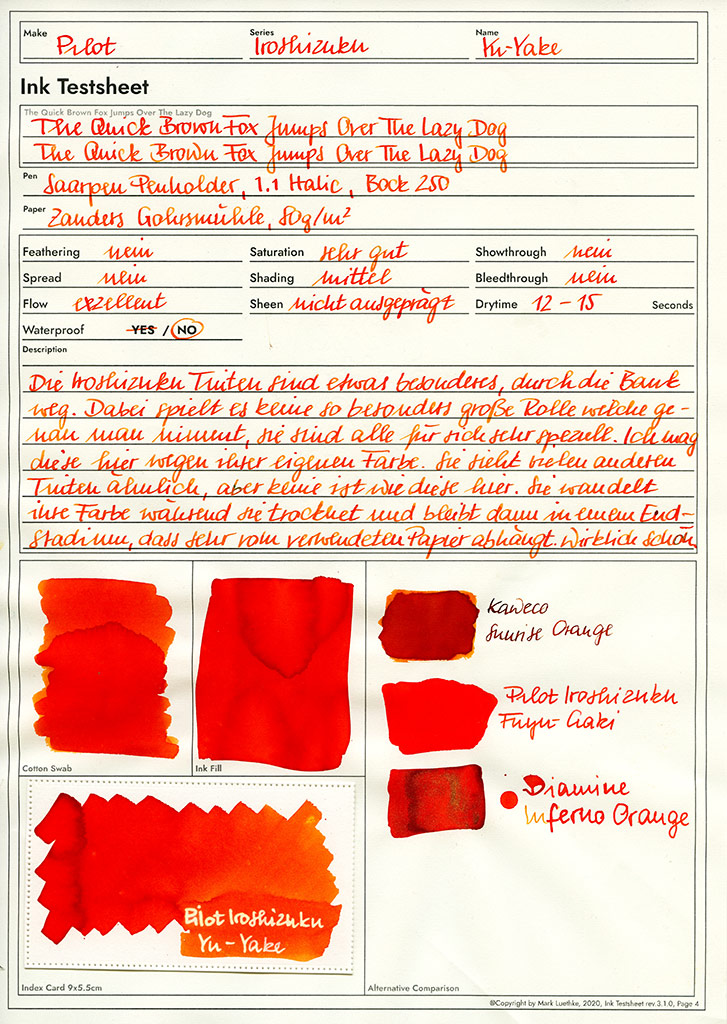 Make Pilot Series Iroshizuku Name Yu-Yake
Ink Testsheet
The Quick Brown Fox Jumps Over The Lazy Dog
The Quick Brown Fox Jumps Over The Lazy Dog
The Quick Brown Fox Jumps Over The Lazy Dog
Pen Saarpen Penholder, 1.1 Italic, Bock 250
Paper Zanders Gohrsmühle, 80g/m²
Feathering nein Saturation sehr gut Showthrough nein
Spread nein Shading mittel Bleedthrough nein
Flow exzellent Sheen nicht ausgeprägt Drytime 12 – 15 Seconds
Waterproof YES / NO
Description
Die Iroshizuku Tinten sind etwas besonderes, durch die Bank
weg. Dabei spielt es keine so besonders große Rolle welche ge-
nau man nimmt, sie sind alle für sich sehr speziell. Ich mag
diese hier wegen ihrer eigenen Farbe. Sie sieht vielen anderen
Tinten ähnlich, aber keine ist wie diese hier. Sie wandelt
ihre Farbe während sie trocknet und bleibt dann in einem End-
stadium, dass sehr vom verwendeten Papier abhängt. Wirklich schön
Kaweco
Sunrise Orange
Pilot Iroshizuku
Fuyu-Gaki
Diamine
Inferno Orange
Cotton Swab
Ink Fill
Pilot Iroshizuku
Yu-Yake
Index Card 9x5.5cm
Alternative Comparison
©Copyright by Mark Luethke, 2020, Ink Testsheet rev.3.1.0, Page 4